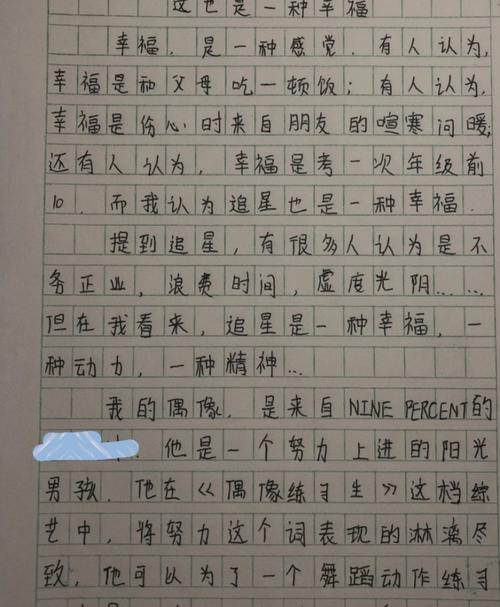 这也是一种幸福
幸福，是一种感觉．有人认为，
幸福是和父母吃一顿饭；有人认为，
幸福是伤心时来自朋友的喧寒问暖；
还有人认为，幸福是考一次年级前
10．而我认为追星也是一种幸福．
提到追星，有很多人认为是不
务正业，浪费时间，虚度光阴……
但在我看来，追星是一种幸福，一
种动力，一种精神…
我的偶像，是来自NINE PERCENT的
他是一个努力上进的阳光
男孩．他在《偶像练习生》这档综
艺中，将努力这个词表现的淋漓尽
致，他可以为了一个舞蹈动作练习